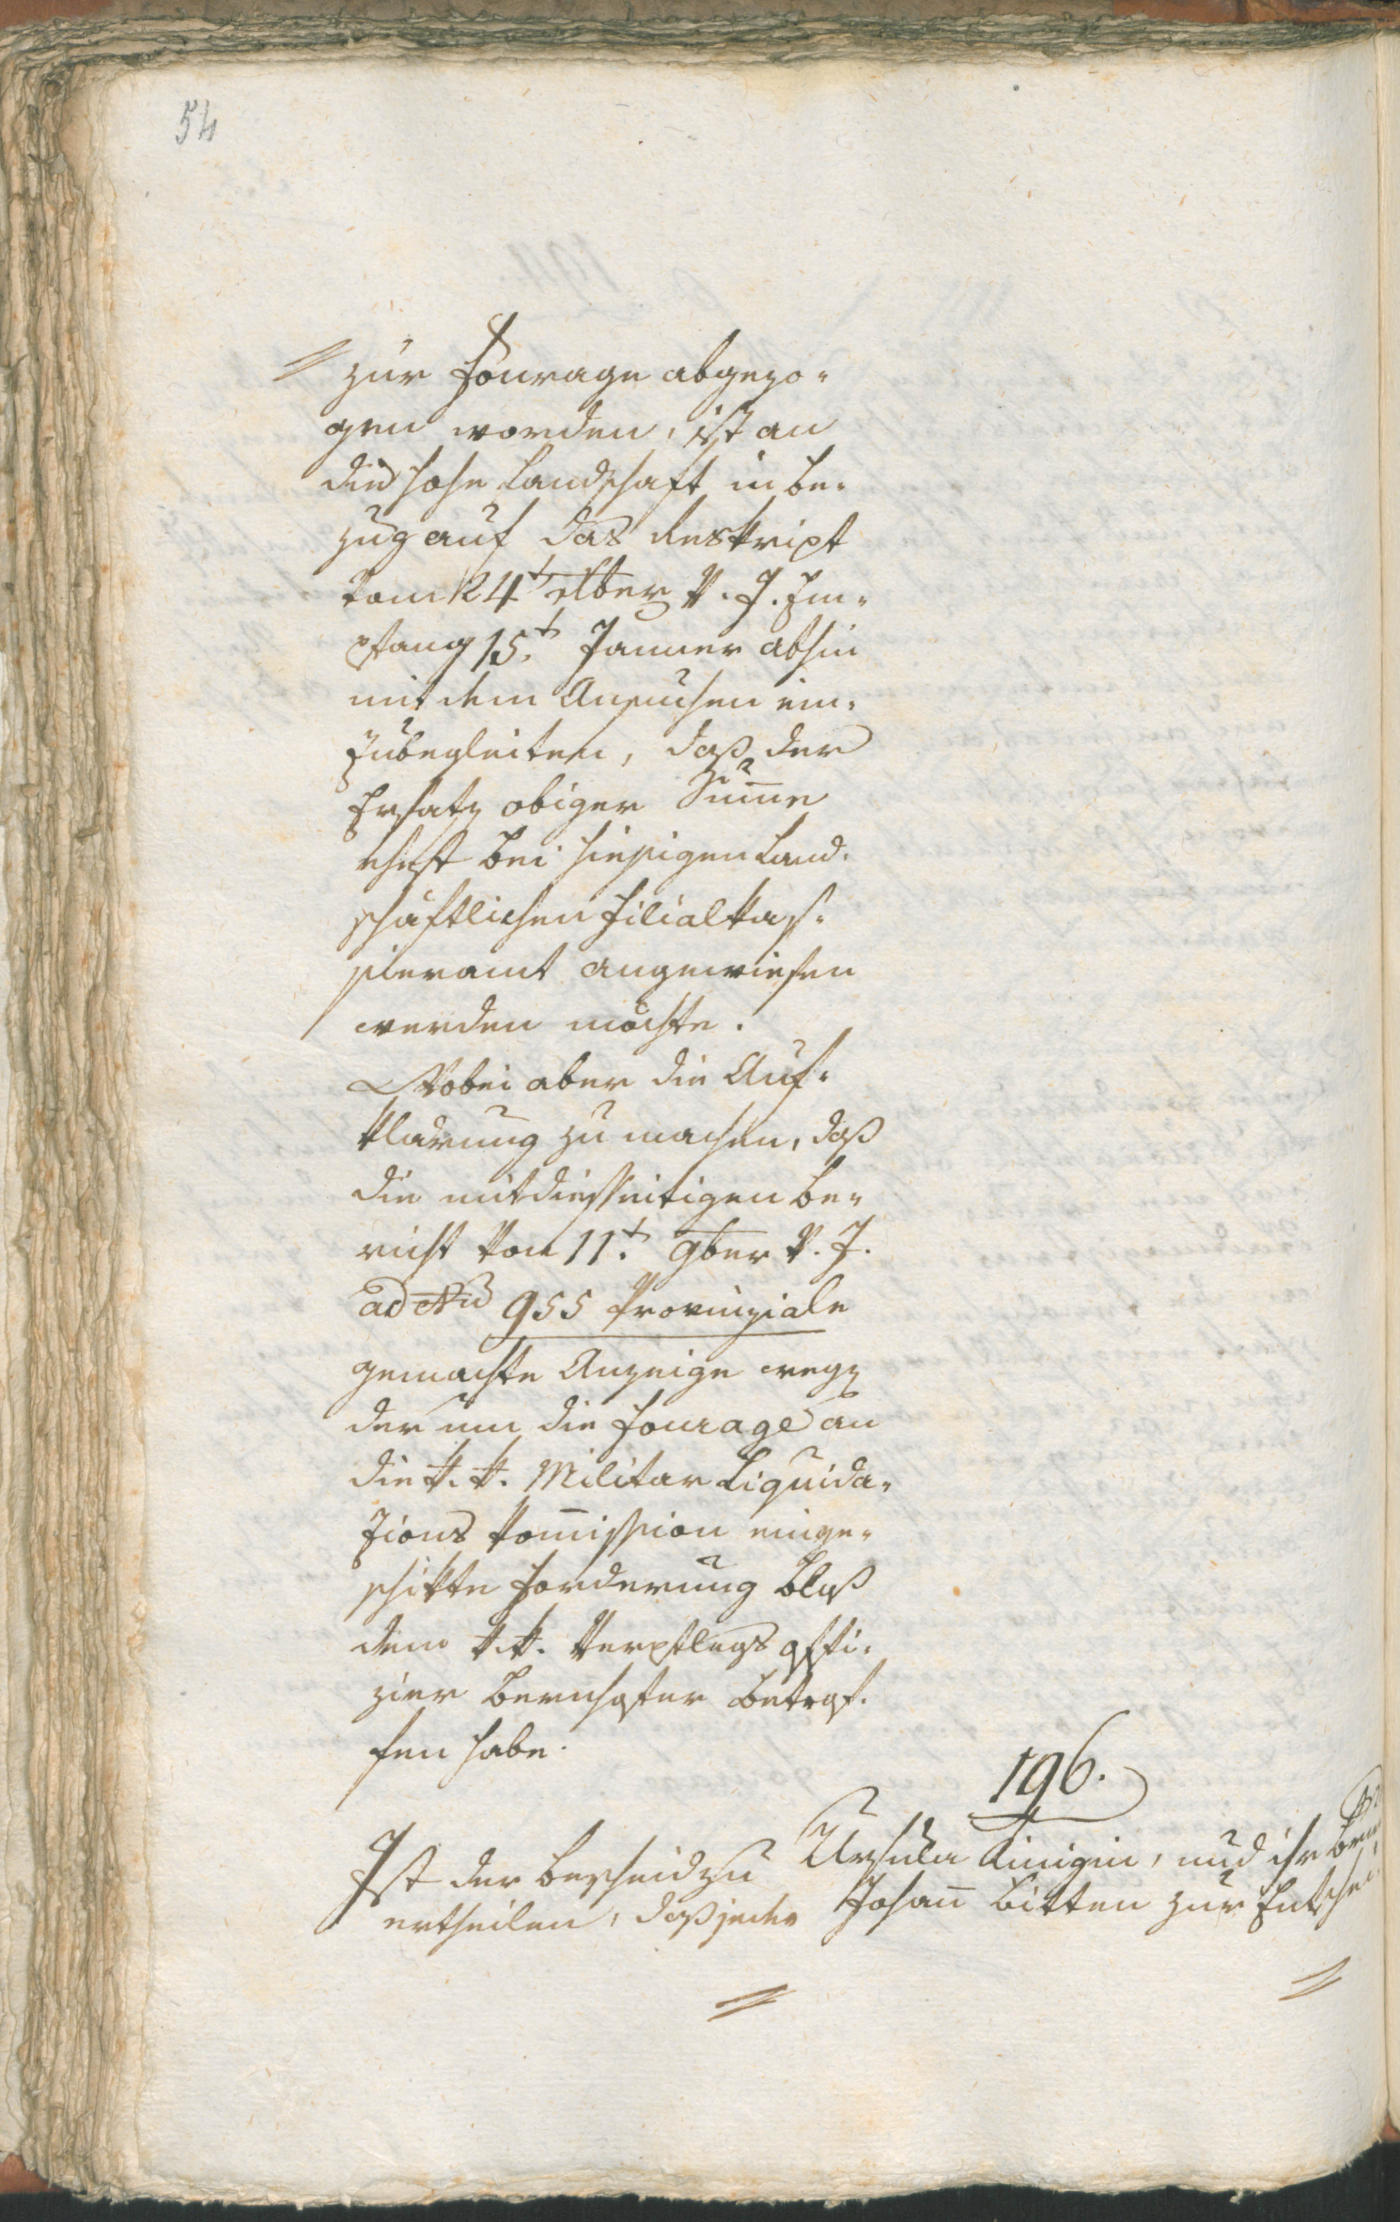 54
zur Fourage abgezo-
gen worden, ist an
die hohe Landschaft in Be-
zug auf das Reskript
vom 24t xber v. J. Em-
pfang 15.t Jänner abhin
mit dem Ansuchen ein-
zubegleiten, daß der
Ersatz obiger Sum̄e
ehest bei hiesigen Land-
schäftlichen Filialkas-
sieramt angewiesen
werden möchte.
Wobei aber die Auf-
klärung zu machen, daß
die mit diesseitigen Be-
richt vom 11.t 9ber v. J.
ad Nu 955 Provinziale
gemachte Anzeige weg
der um die Fourage an
die k. k. Militar Liquida-
zions Kom̄ission einge-
schikte Forderung bloß
dem k. k. Verpflegs offi-
zier betrof-
fen habe.
196.
Ist der Bescheid zu
ertheilen, daß jeder
Ursula und ihr
Johan̄ bitten zur